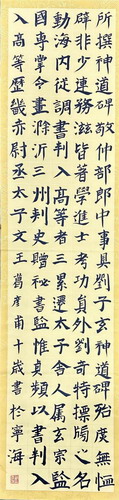 所撰神道碑敬仲部郎中事具劉子玄神道碑殆度無恤
辟非少連務滋皆著學進士考功員外劉奇特牓之名
動海內從調書判入高等者三累遷太子舍人屬玄宗監
國專掌令畫滁沂三州刺史贈秘書監惟貞頻以書判
入高等歷畿赤尉丞太子文 王 甫十歲書於寧海